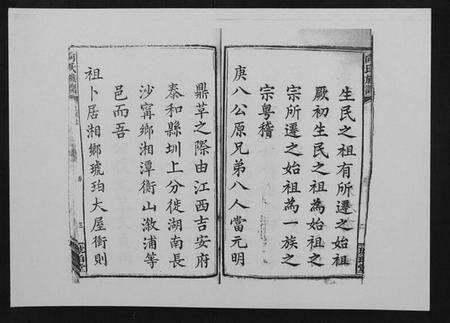 生民之祖有所遷之始祖
厥初生民之祖為始祖之
宗所遷之始祖為一族之
宗粤稽
庚八公原兄弟八人當元明
鼎革之際由江西吉安府
泰和縣圳上分徙湖南長
沙寗鄉湘潭衡山漵浦等
邑而吾
祖卜居湘鄉琥珀大屋衝則